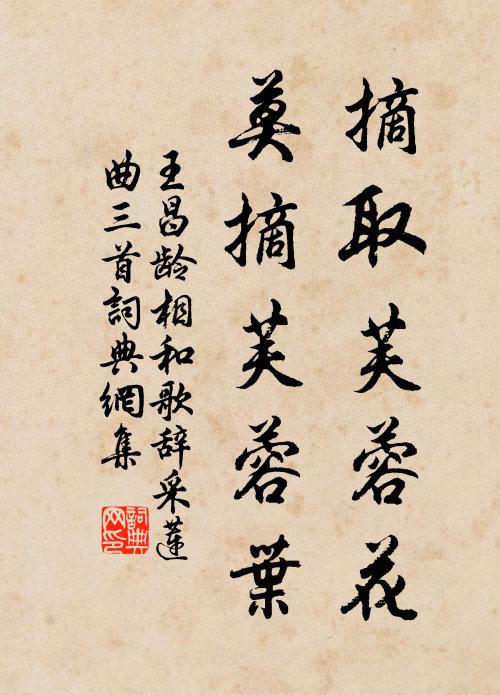 摘取芙蓉花
莫摘芙蓉葉
王昌龄相和歌辞采蓮
曲三首詞典網集
詞典
网印